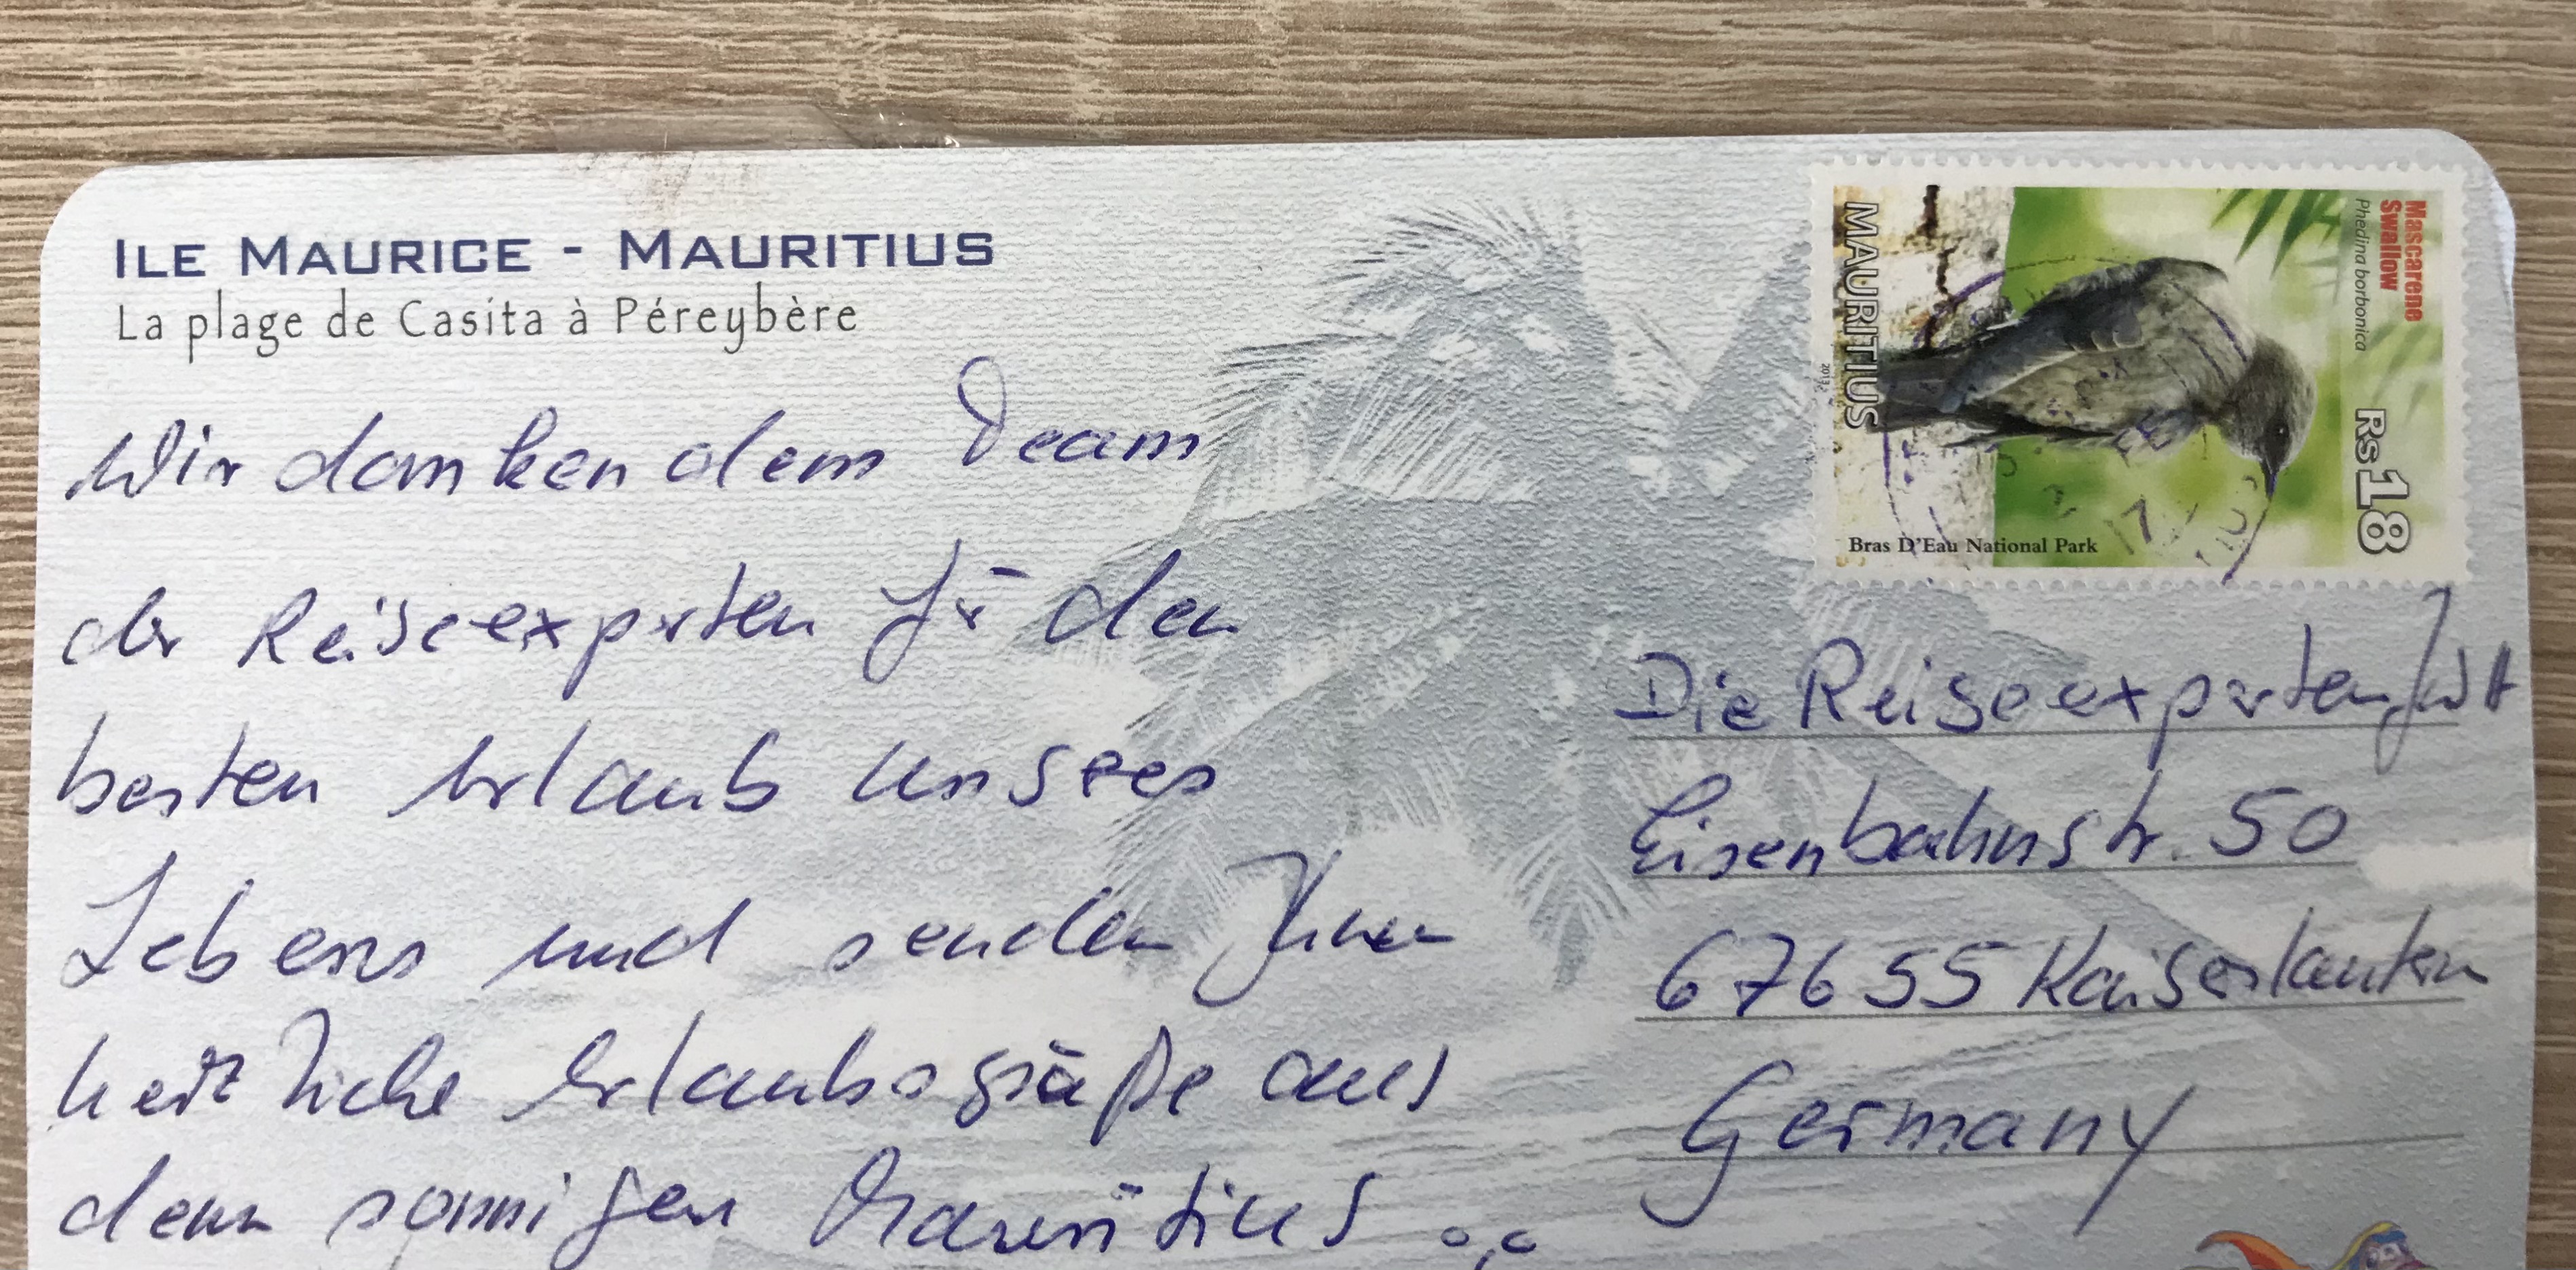 ILE MAURICE - MAURITIUS
La plage de Casita à Péreybère
Wir danken dem Team
der Reiseexperten für den
besten Urlaub unseres
Lebens und senden Ihnen
herzliche Urlaubsgrüße aus
dem sonnigen Mauritius
Mascarene
Swallow
Phedina borbonica
Rs 18
MAURITIUS
2013
Bras D'Eau National Park
Die Reiseexperten
Eisenbahnstr. 50
67655 Kaiserslautern
Germany